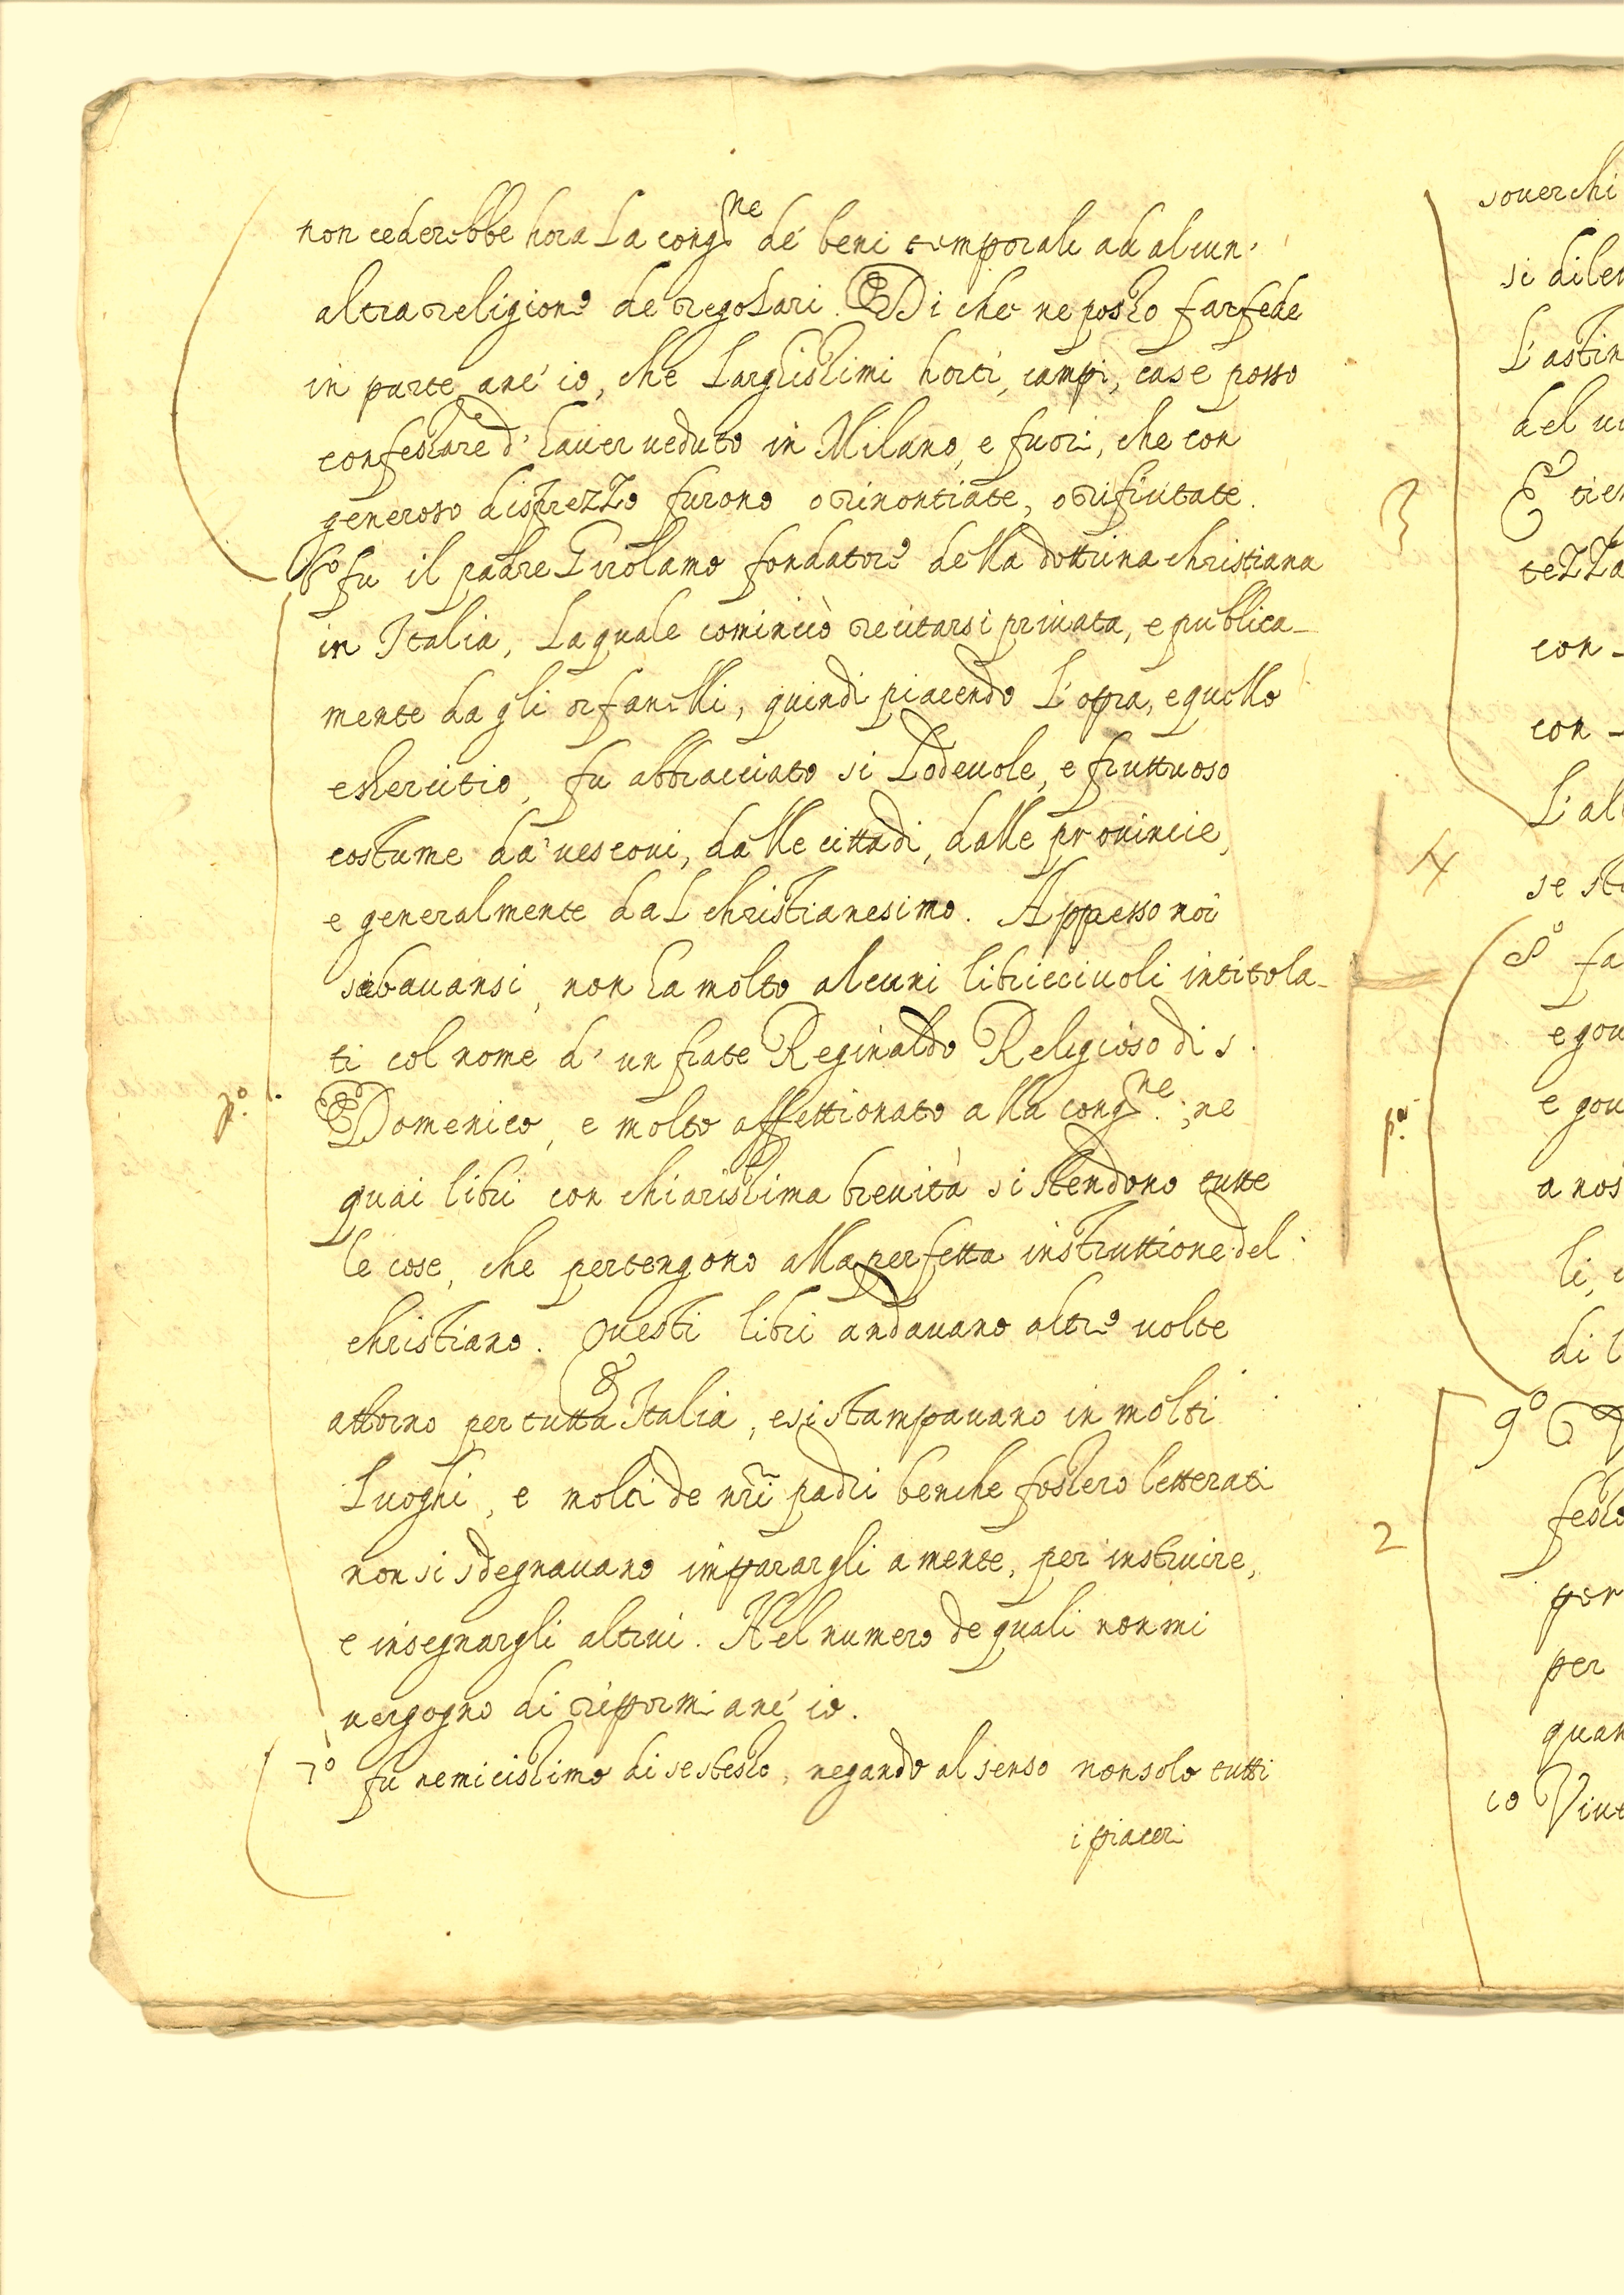 non cederebbe hora la cong.ne de' beni temporali ad alcun'
altra religione de regolari. Di che ne posso far fede
in parte anc' io, che larghissimi horti, campi, case posso
confessare d' haver veduto in Milano, e fuori, che con
generoso disprezzo furono o rinontiate, o rifiutate.
6º fu il padre Girolamo fondatore della dottrina christiana
in Italia, la quale cominciò recitarsi privata, e publica-
mente da gli orfanelli, quindi piacendo l' opra, e quello
essercitio, fu abbracciato si lodevole, e fruttuoso
costume da' vescovi, dalle cittadi, dalle provincie,
e generalmente dal christianesimo. Appresso noi
serbavansi, non ha molto alcuni libricciuoli intitola-
ti col nome d' un frate Reginaldo Religioso di s.
p.º
Domenico, e molto affettionato alla cong.ne; ne
quai libri con chiarissima brevità si stendono tutte
le cose, che pertengono alla perfetta instruttione del
christiano. Questi libri andavano altre volte
attorno per tutta Italia, e si stampavano in molti
luoghi, e molti de nri padri benche fossero letterati
non si sdegnavano imparargli a mente, per instruire,
e insegnargli altrui. Nel numero de quali non mi
vergogno di ripormi anc' io.
7º fu nemicissimo di se stesso, negando al senso non solo tutti
i piaceri
soverchi
si dile
L' astin
del vi
3
E tie
tezza
con
con
L' al
4
se st
8º fa
e gov
p.º
e gov
a nos
li,
di l
9º
2
fesso
per
per
quan
10 Vi